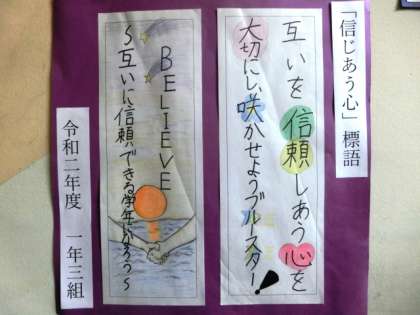 「信じあう心」標語
互いを信頼しあう心を
大切にし、咲かせようブルースター!
BELIEVE
～互いに信頼できる学年になろう～
令和二年度　一年三組